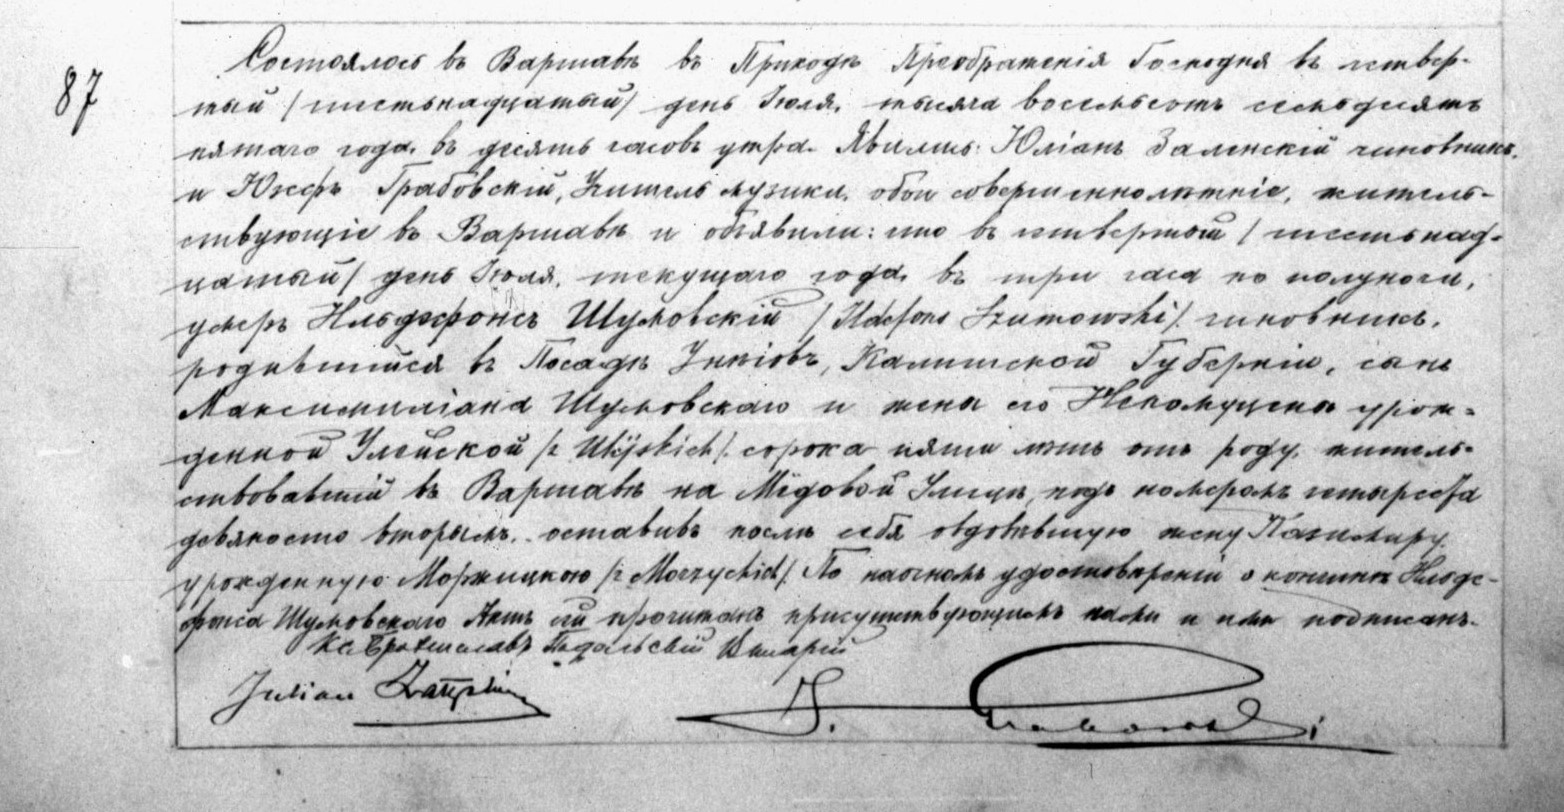 87
Состоялось въ Варшавѣ въ Приходѣ Преображенія Господня въ четвер-
тый /шестьнадцатый/ день Іюля, тысяча восемьсотъ семьдесятъ
пятаго года, въ десять часовъ утра. Явились: Юліанъ Заленскій чиновникъ,
и Юзефъ Грабовскій, Учитель музыки, обои совершеннолѣтніе, житель-
ствующіе въ Варшавѣ и объявили: что въ четвертый /шестьнад-
цатый/ день Іюля, текущаго года, въ три часа по полуночи,
умеръ Ильдефонсъ Шумовскій /Ildefons Szumowski/. чиновникъ,
родившійся въ Посадѣ Унѣіовъ, Калишской Губерніи, сынъ
Максимиліана Шумовскаго и жены его Непомуцены урож-
денной Улейской /z Ulejskich/. сорока пяти лѣтъ отъ роду, житель-
ствовавшій въ Варшавѣ на Мёдовой Улицѣ, подъ номеромъ четыреста
девяносто вторымъ, оставивъ послѣ себя овдовѣвшую жену Казимиру
урожденную Моржицкою /z Morzyckich/. По наочномъ удостовѣреніи о кончинѣ Ильде-
фонса Шумовскаго Актъ сей прочитанъ присутствующимъ нами и ими подписанъ.
Кс. Брониславъ Подальскій Викарій
Julian
J. Grabowski